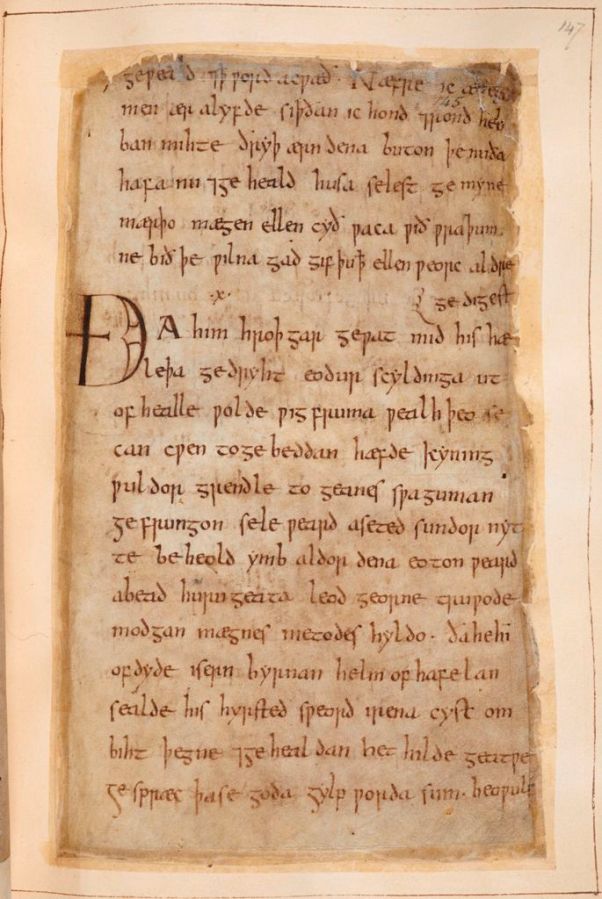 147
geƿeald ⁊ꝥ ƿord acƿæð · Næfre ic ænegū
145
men ær alyfde siþðan ic hond ⁊ rond heb
ban mihte ðryþ ærn dena buton þe nu ða
hafa nu ⁊ ge heald husa selest ge myne
mærþo mægen ellen cyð ƿaca ƿið ƿraþum.
ne bið þe ƿilna gad gif þu ꝥ ellen ƿeorc aldre
·x· ge digest
ÐA him hroþgar geƿat mid his hæ
leþa ge dryht eodur scyldinga ut
of healle ƿolde ƿig fruma ƿealhþeo se
can cƿen to ge beddan hæfde kyning
ƿuldor grendle to geanes sƿa guman
ge frungon sele ƿeard aseted sundor nyt
te be heold ymb aldor dena eoton ƿeard
abead huru geata leod georne truƿode
modgan mægnes metodes hyldo · ða he hī
of dyde isern byrnan helm of hafelan
sealde his hyrsted sƿeord irena cyst om
biht þegne ⁊ ge heal dan het hilde geatƿe
ge spræc þa se goda gylp ƿorda sum · beoƿulf